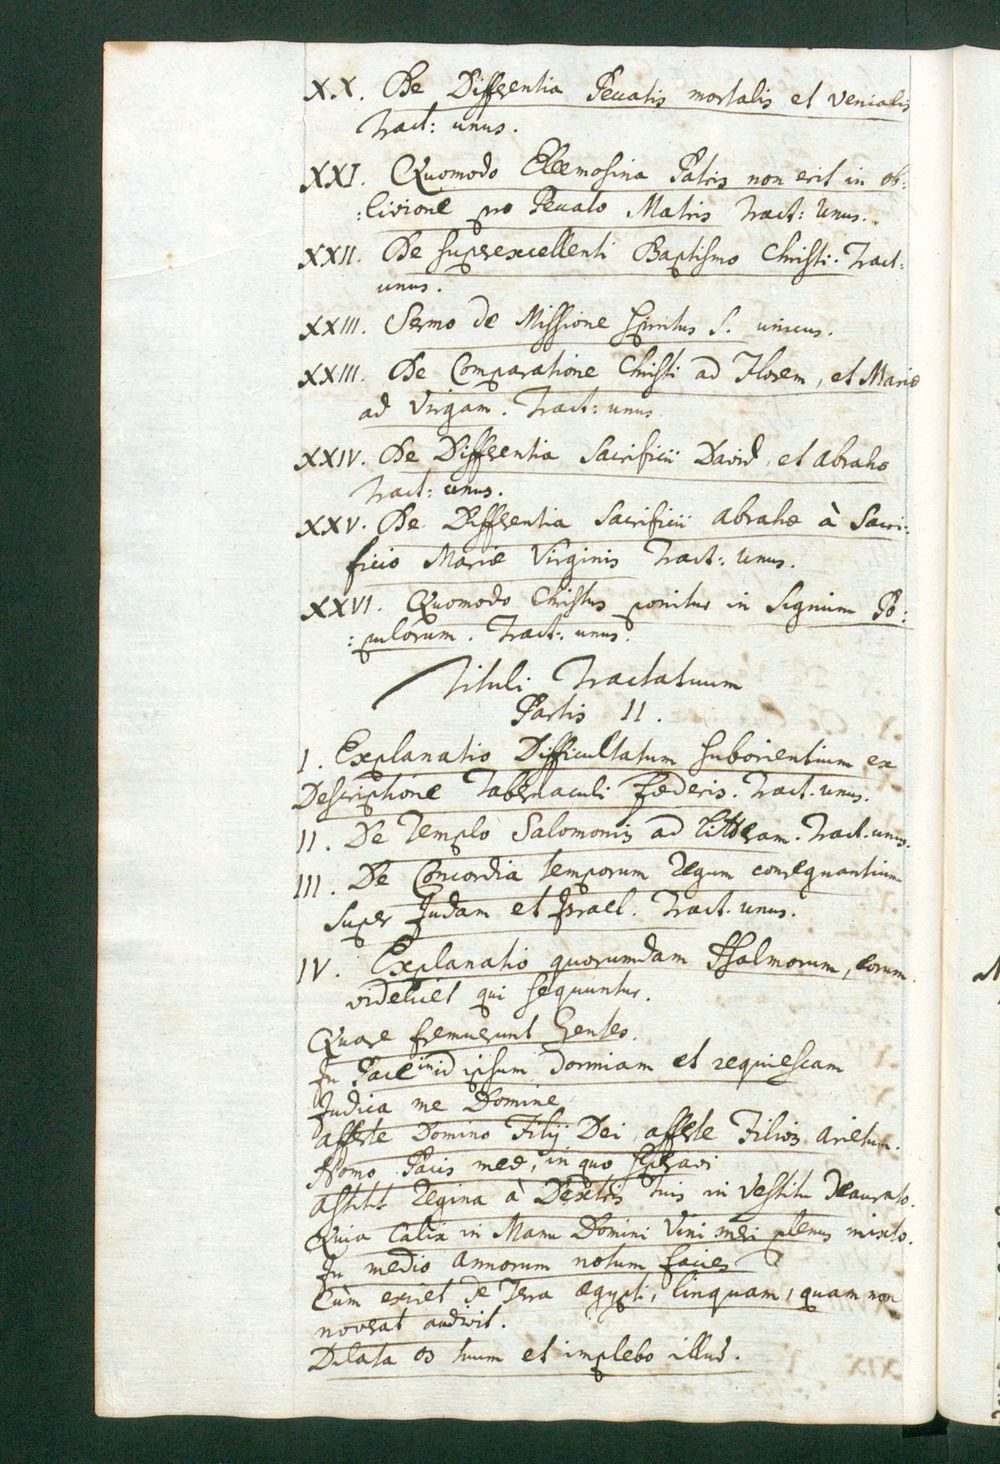 XX. De Differentia Peccatis mortalis et venialis
Tract: unus.
XXI. Quomodo Eleemosina Patris non erit in ob:
:livione pro Peccato Matris Tract: Unus.
XXII. De superexcellenti Baptismo Christi. Tract:
unus.
XXIII. Sermo de Missione Spiritus S. unicus.
XXIII. De Comparatione Christi ad Florem, et Mariæ
ad Virgam. Tract: unus.
XXIV. De Differentia Sacrificii David, et Abrahæ
Tract: unus.
XXV. De Differentia Sacrificii Abrahæ à Sacri:
ficio Mariæ Virginis Tract: Unus.
XXVI. Quomodo Christus ponitur in Signum Po:
:pulorum. Tract: unus.
Tituli Tractatuum
Partis II.
I. Explanatio Difficultatum suborientium ex
Descriptione Tabernaculi fœderis. Tract. unus.
II. De Templo Salomonis ad Litteram. Tract. unus.
III. De Concordia temporum regum conregnantium
super Judam et Israel. Tract. unus.
IV. Explanatio quorumdam Psalmorum, eorum
videlicet qui sequuntur.
Quare fremuerunt Gentes.
In Pace in id ipsum dormiam et requiescam
Judica me Domine
afferte Domino Filij Dei, afferte Filios arietum.
Homo Pacis meæ, in quo speravi
astitit Regina à Dextris tuis in vestitu deaurato.
Quia Calix in Manu Domini Vini meri plenus mixto.
In medio annorum notum facies
Cùm exiret de Terra ægypti, linguam, quam non
noverat audivit.
Dilata os tuum et implebo illud.